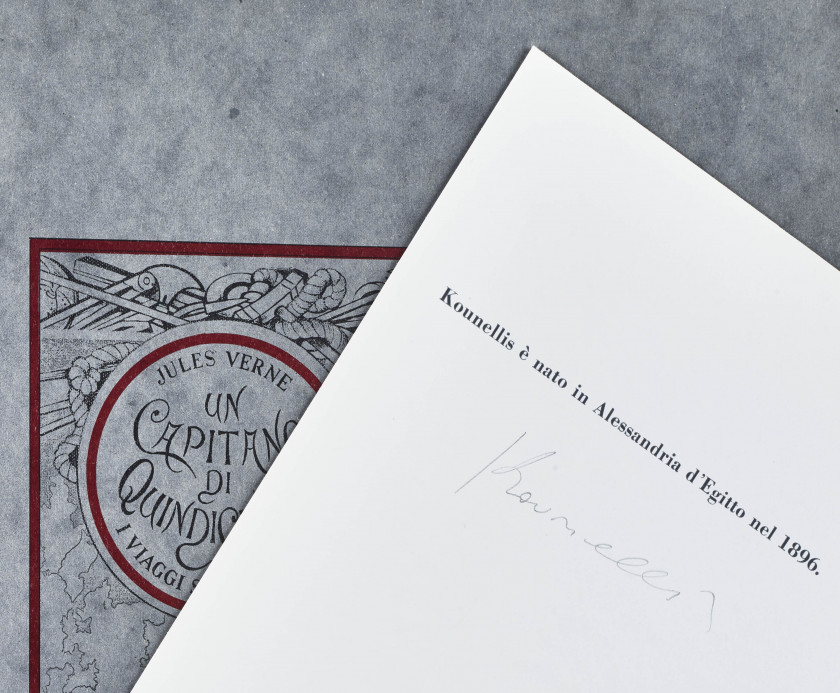 JULES VERNE
UN
CAPITANO
DI
QUINDIC
I VIAGGI S
Kounellis è nato in Alessandria d'Egitto nel 1896.
Kounellis